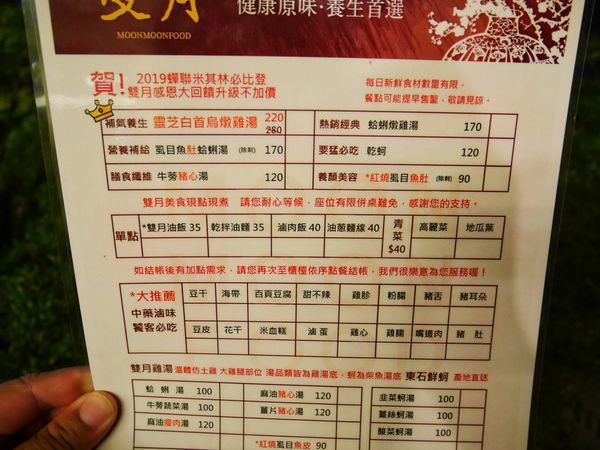 雙月
MOONMOONFOOD
健康原味‧養生首選
賀!
2019蟬聯米其林必比登
雙月感恩大回饋升級不加價
每日新鮮食材數量有限,
餐點可能提早售鑿,敬請見諒。
補氣養生 靈芝白首烏燉雞湯 220 280
熱銷經典 蛤蜊燉雞湯 170
營養補給 虱目魚肚蛤蜊湯 (除刺) 170
要猛必吃 乾蚵 120
膳食纖維 牛蒡豬心湯 120
養顏美容 *紅燒虱目魚肚 (除刺) 90
雙月美食現點現煮 請您耐心等候,座位有限併桌難免,感謝您的支持。
單點 *雙月油飯 35 乾拌油麵 35 滷肉飯 40 油蔥麵線 40 青菜 $40 高麗菜 地瓜葉
如結帳後有加點需求,請您再次至櫃檯依序點餐結帳,我們很樂意為您服務喔!
*大推薦
中藥滷味
饕客必吃
豆干 海帶 百頁豆腐 甜不辣 雞胗 粉腸 豬舌 豬耳朵
豆皮 花干 米血糕 滷蛋 雞心 雞腸 嘴邊肉 豬肚
雙月雞湯 溫體仿土雞 大雞腿部位 湯品類皆為雞湯底,蚵為柴魚湯底 東石鮮蚵 產地直送
蛤蜊湯 100
麻油豬心湯 120
韭菜蚵湯 100
牛蒡蔬菜湯 100
薑片豬心湯 120
薑絲蚵湯 100
麻油瘦肉湯 120
酸菜蚵湯 100
*紅燒虱目魚皮 90